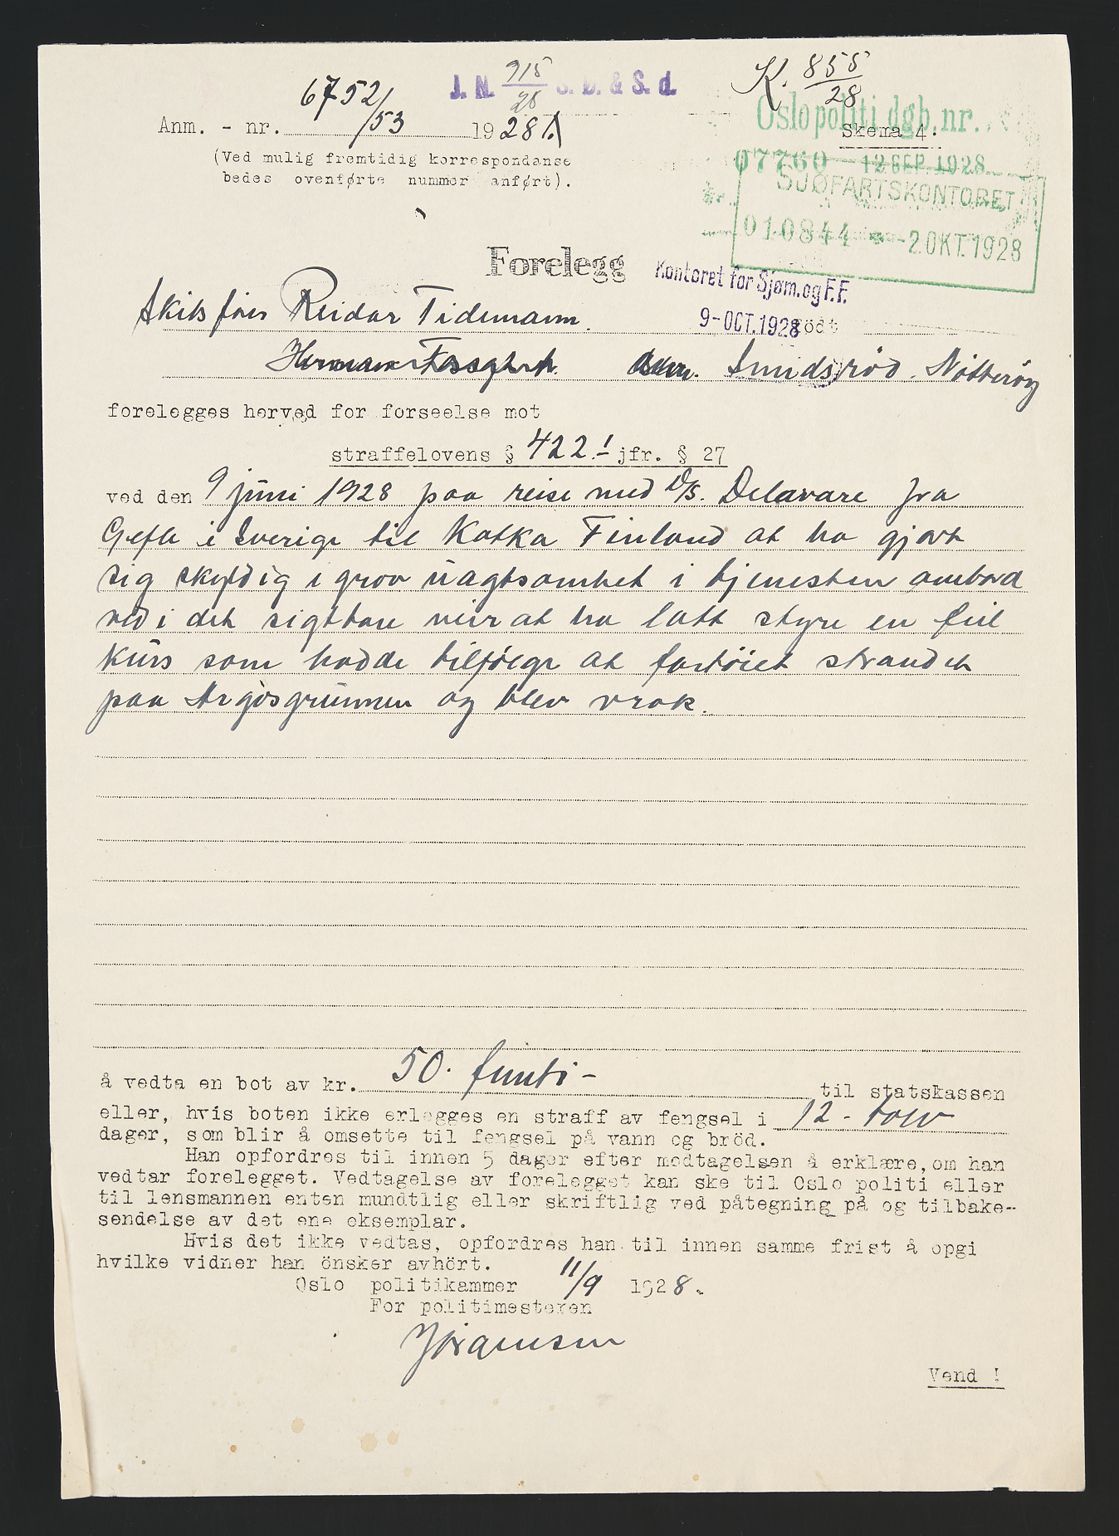 6752/53
J. N. 915/28 S. D. & S. d.
K. 855/28
Anm. - nr. 1928 A
Oslo politi dgb. nr.
Skema 4.
(Ved mulig fremtidig korrespondanse
07760 12 SEP. 1928
bedes ovenførte nummer anført).
SJØFARTSKONTORET
010844 -2 OKT. 1928
Forelegg
Kontoret for Sjøm. og F.F.
9-OCT. 1928
født
Skibsfører Reidar Tidemann
Sundsrød. Nøtterøy
forelegges herved for forseelse mot
straffelovens § 422.1 jfr. § 27
ved den 9 juni 1928 paa reise med D/S. Delavare fra
Gefle i Sverige til Kotka Finland at ha gjort
sig skyldig i grov uagtsomhet i tjenesten ombord
ved i det sigtbare veir at ha latt styre en feil
kurs som hadde tilfølge at fartöiet strandet
paa Argosgrunnen og blev vrak.
å vedta en bot av kr. 50. femti - til statskassen
eller, hvis boten ikke erlegges en straff av fengsel i 12 - tolv
dager, som blir å omsette til fengsel på vann og bröd.
Han opfordres til innen 5 dager efter modtagelsen å erklære, om han
vedtar forelegget. Vedtagelse av forelegget kan ske til Oslo politi eller
til lensmannen enten mundtlig eller skriftlig ved påtegning på og tilbake-
sendelse av det ene eksemplar.
Hvis det ikke vedtas, opfordres han til innen samme frist å opgi
hvilke vidner han önsker avhört.
Oslo politikammer 11/9 1928.
For politimesteren
Jörgensen
Vend !